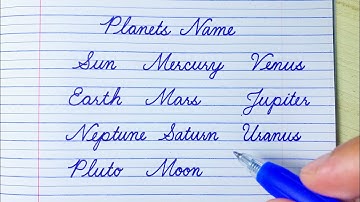 Planets Name
Sun Mercury Venus
Earth Mars Jupiter
Neptune Saturn Uranus
Pluto Moon